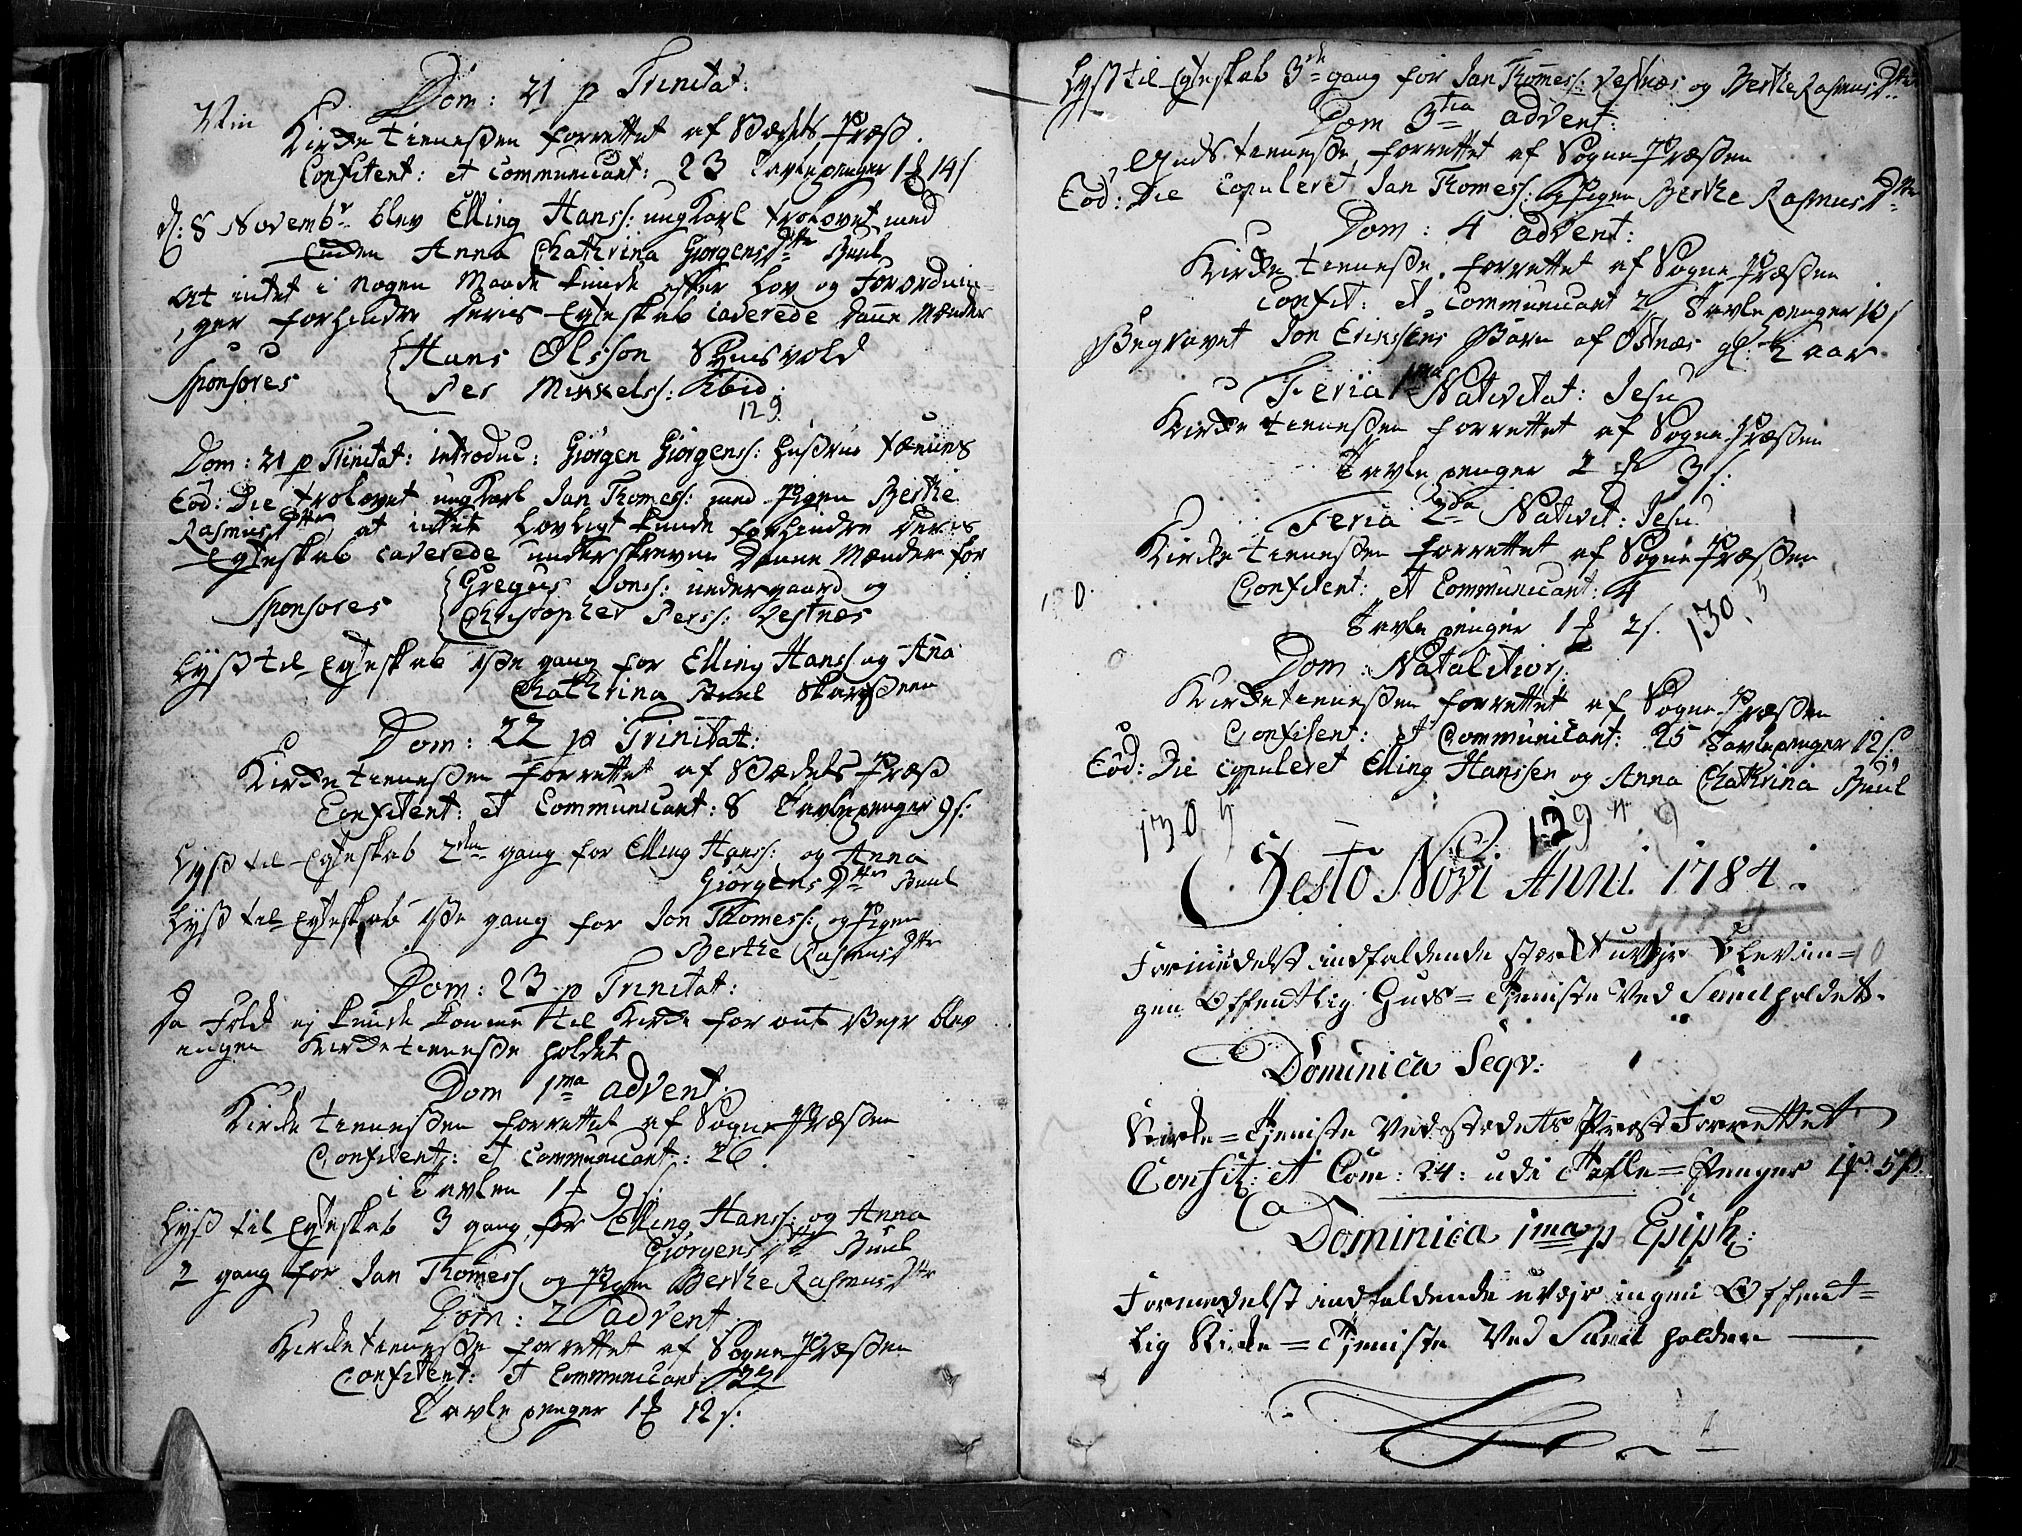 Dom: 21 p Trinitat:
Vin
Kirke tienesten forrettet af Stædets Præst.
Confitent: et communicant: 23 Tavlepenger 1 14 s
d: 8 Novembr blev Elling Hanss: ungkarl trolovet med
Anna Chathrina Giørgensdtr Buul
At intet i nogen Maade kunde efter Lov og Forordnin-
ger forhindre deris Egteskab caverede Danne Mænder
Sponsores
Hans Olsson
Per Mikkelss: Ibid:
129
Dom: 21 p Trinitat: introduc: Giørgen Giørgenss: Hustrue
Eod: Die trolovet ungkarl Jan Thomess: med Pigen Berthe
Rasmus Dttr at intet Lovligt kunde forhindre deris
Egteskab caverede underskrevne Danne Mænder for
Sponsores
Gregus Jonss: undergaard og
Christopher Perss: Vestnæs
Lyst til Egteskab 1ste gang for Elling Hanss og Aña
Chathrina Buul
Dom: 22 p Trinitat:
Kirke tienesten forrettet af Stædets Præst
Confitent: et Communicant: 8 Tavlepenger 9 s:
Lyst til Egteskab 2den gang for Elling Hanss: og Anna
Giørgens Dttr Buul
Lyst til Egteskab 1ste gang for Jon Thomess: og Pigen
Berthe Rasmus Dttr
Dom: 23 p Trinitat:
Da Folk ej kunde komme til Kirke for ont Vejr blev
ingen Kirke tieneste holdet
Dom 1ma advent:
Kirke tienesten forrettet af Sogne Præsten
Confitent: et Communicant: 26
i Tavlen 1 9 s:
Lyst til Egteskab 3 gang for Elling Hanss: og Anna
Giørgens Dtr Buul
2 gang for Jan Thomess og Pigen Berthe Rasmus Dttr
Dom: 2 advent
Kirke tieneste forrettet af Sogne Præsten
Confitent: et Communicant: 22
Tavle penger 1 12 s:
Lyst til Egteskab 3de gang for Jan Thomess: Vestnæs og Berthe Rasmus Dttr
Dom 3tia advent:
Guds tieneste forrettet af Sogne Præsten
Eod: Die copuleret Jan Thomess: og Pigen Berthe Rasmus Dttr
Dom: 4 advent:
Kirke tieneste forrettet af Sogne Præsten
Confit: et Communicant 2 Tavle penger 10 s
Begravet Jon Erikssens Barn af Ostnæs gl: 2 aar
Feria 1ma Nativitat: Jesu
Kirke tienesten forrettet af Sogne Præsten
Tavle penger 2 3 s:
Feria 2da Nativit: Jesu
Kirke tienesten forrettet af Sogne Præsten
Confitent: et Communicant: 4
Tavle penger 1 2 s. 130
Dom: Natalitior:
Kirke tienesten forrettet af Sogne Præsten
Confitent: et Communicant: 25 Tavlepenger 12 s:
Eod: Die copuleret Elling Hanssen og Anna Chathrina Buul
130 129
Festo Novi Anni 1784.
Formedelst indfaldende stærkt uvejr blev in=
gen Offentlig Guds=Tjeniste Ved Sund holdet.
Dominica Seqv:
Kirke=Tjeniste Ved stedets Præst Forrettet
Confit: et Com: 24: udi Tafle=Penger 1 5
Dominica 1ma p Epiph:
Formedelst indfaldende uvejr ingen Offent=
lig Kirke=Tjeniste Ved Sund holden